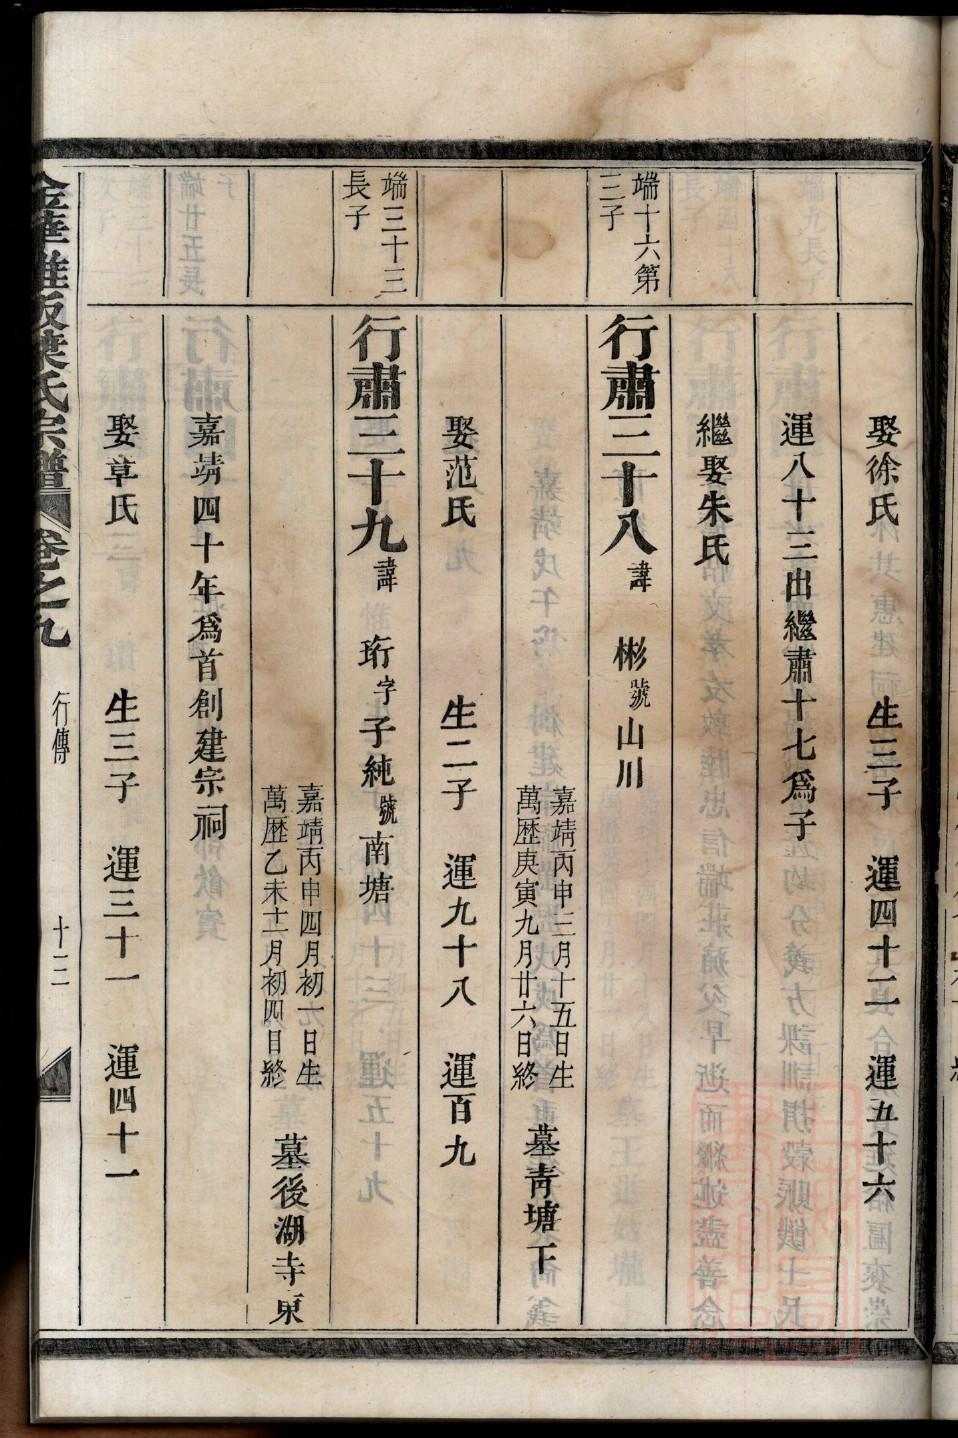 娶徐氏 生三子 運四十二 運五十六
運八十三出繼肅十七爲子
繼娶朱氏
端十六第三子
行肅三十八諱 彬號山川
嘉靖丙申三月十五日生
萬歴庚寅九月廿六日終
墓青塘下
娶范氏 生二子 運九十八 運百九
端三十三長子
行肅三十九諱 珩字子純號南塘
嘉靖丙申四月初一日生
萬歴乙未十二月初四日終
墓後湖寺東
嘉靖四十年爲首創建宗祠
娶章氏 生三子 運三十一 運四十一
金華 氏宗譜 卷之九 行傳 十三